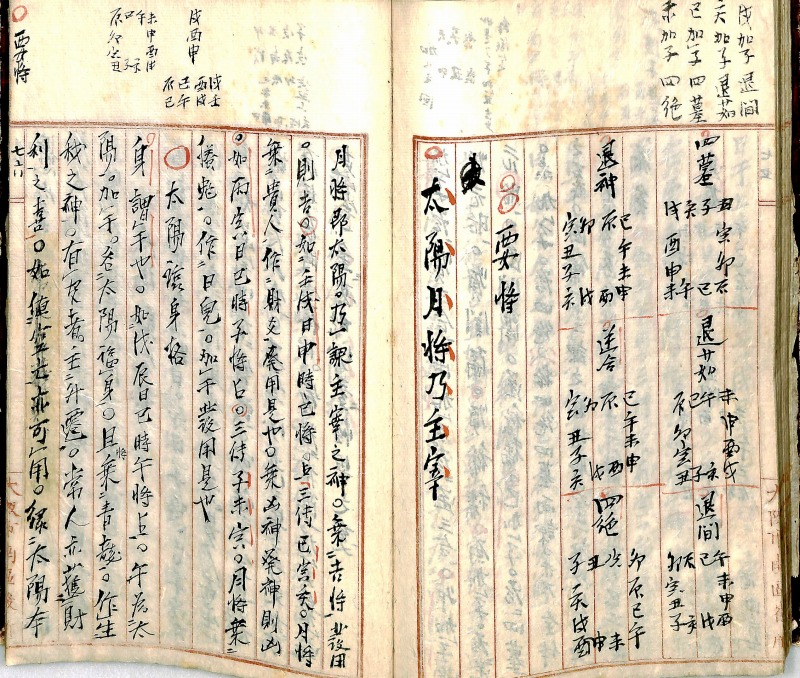 戌加子 退間
亥加子 退茹
巳加子 四墓
未加子 四絶
四墓
丑寅卯辰
子 巳
亥 午
戌酉申未
退茹
未申酉戌
午 亥
巳 子
辰卯寅丑
退間
午未申酉
巳 戌
辰 亥
卯寅丑子
退神
巳午未申
辰 酉
卯 戌
寅丑子亥
送合
巳午未申
辰 酉
卯 戌
寅丑子亥
四絶
卯辰巳午
寅 未
丑 申
子亥戌酉
要将
太陽月将乃主宰
申
酉
戌
戌
酉戌
巳午
辰巳
未申酉戌
午 亥
巳 子
辰卯寅丑
要将
月将即太陽。乃一課主宰之神。乗吉将
則吉。如壬戌日申時巳将。占三傳巳寅亥。月将
乗貴人。作財爻發用是也。乗凶神
。如丙寅日巳時子将占。三傳子未寅。月将乗
作日鬼。加午發用是也
太陽 身格
身謂午也。如戊辰日巳時午将占。午為太
陽。加午。名太陽 身。且乗青龍。作生
我之神。占 者。主外遷。常人亦獲財
利之喜。如 亦可用。縁太陽本
七二